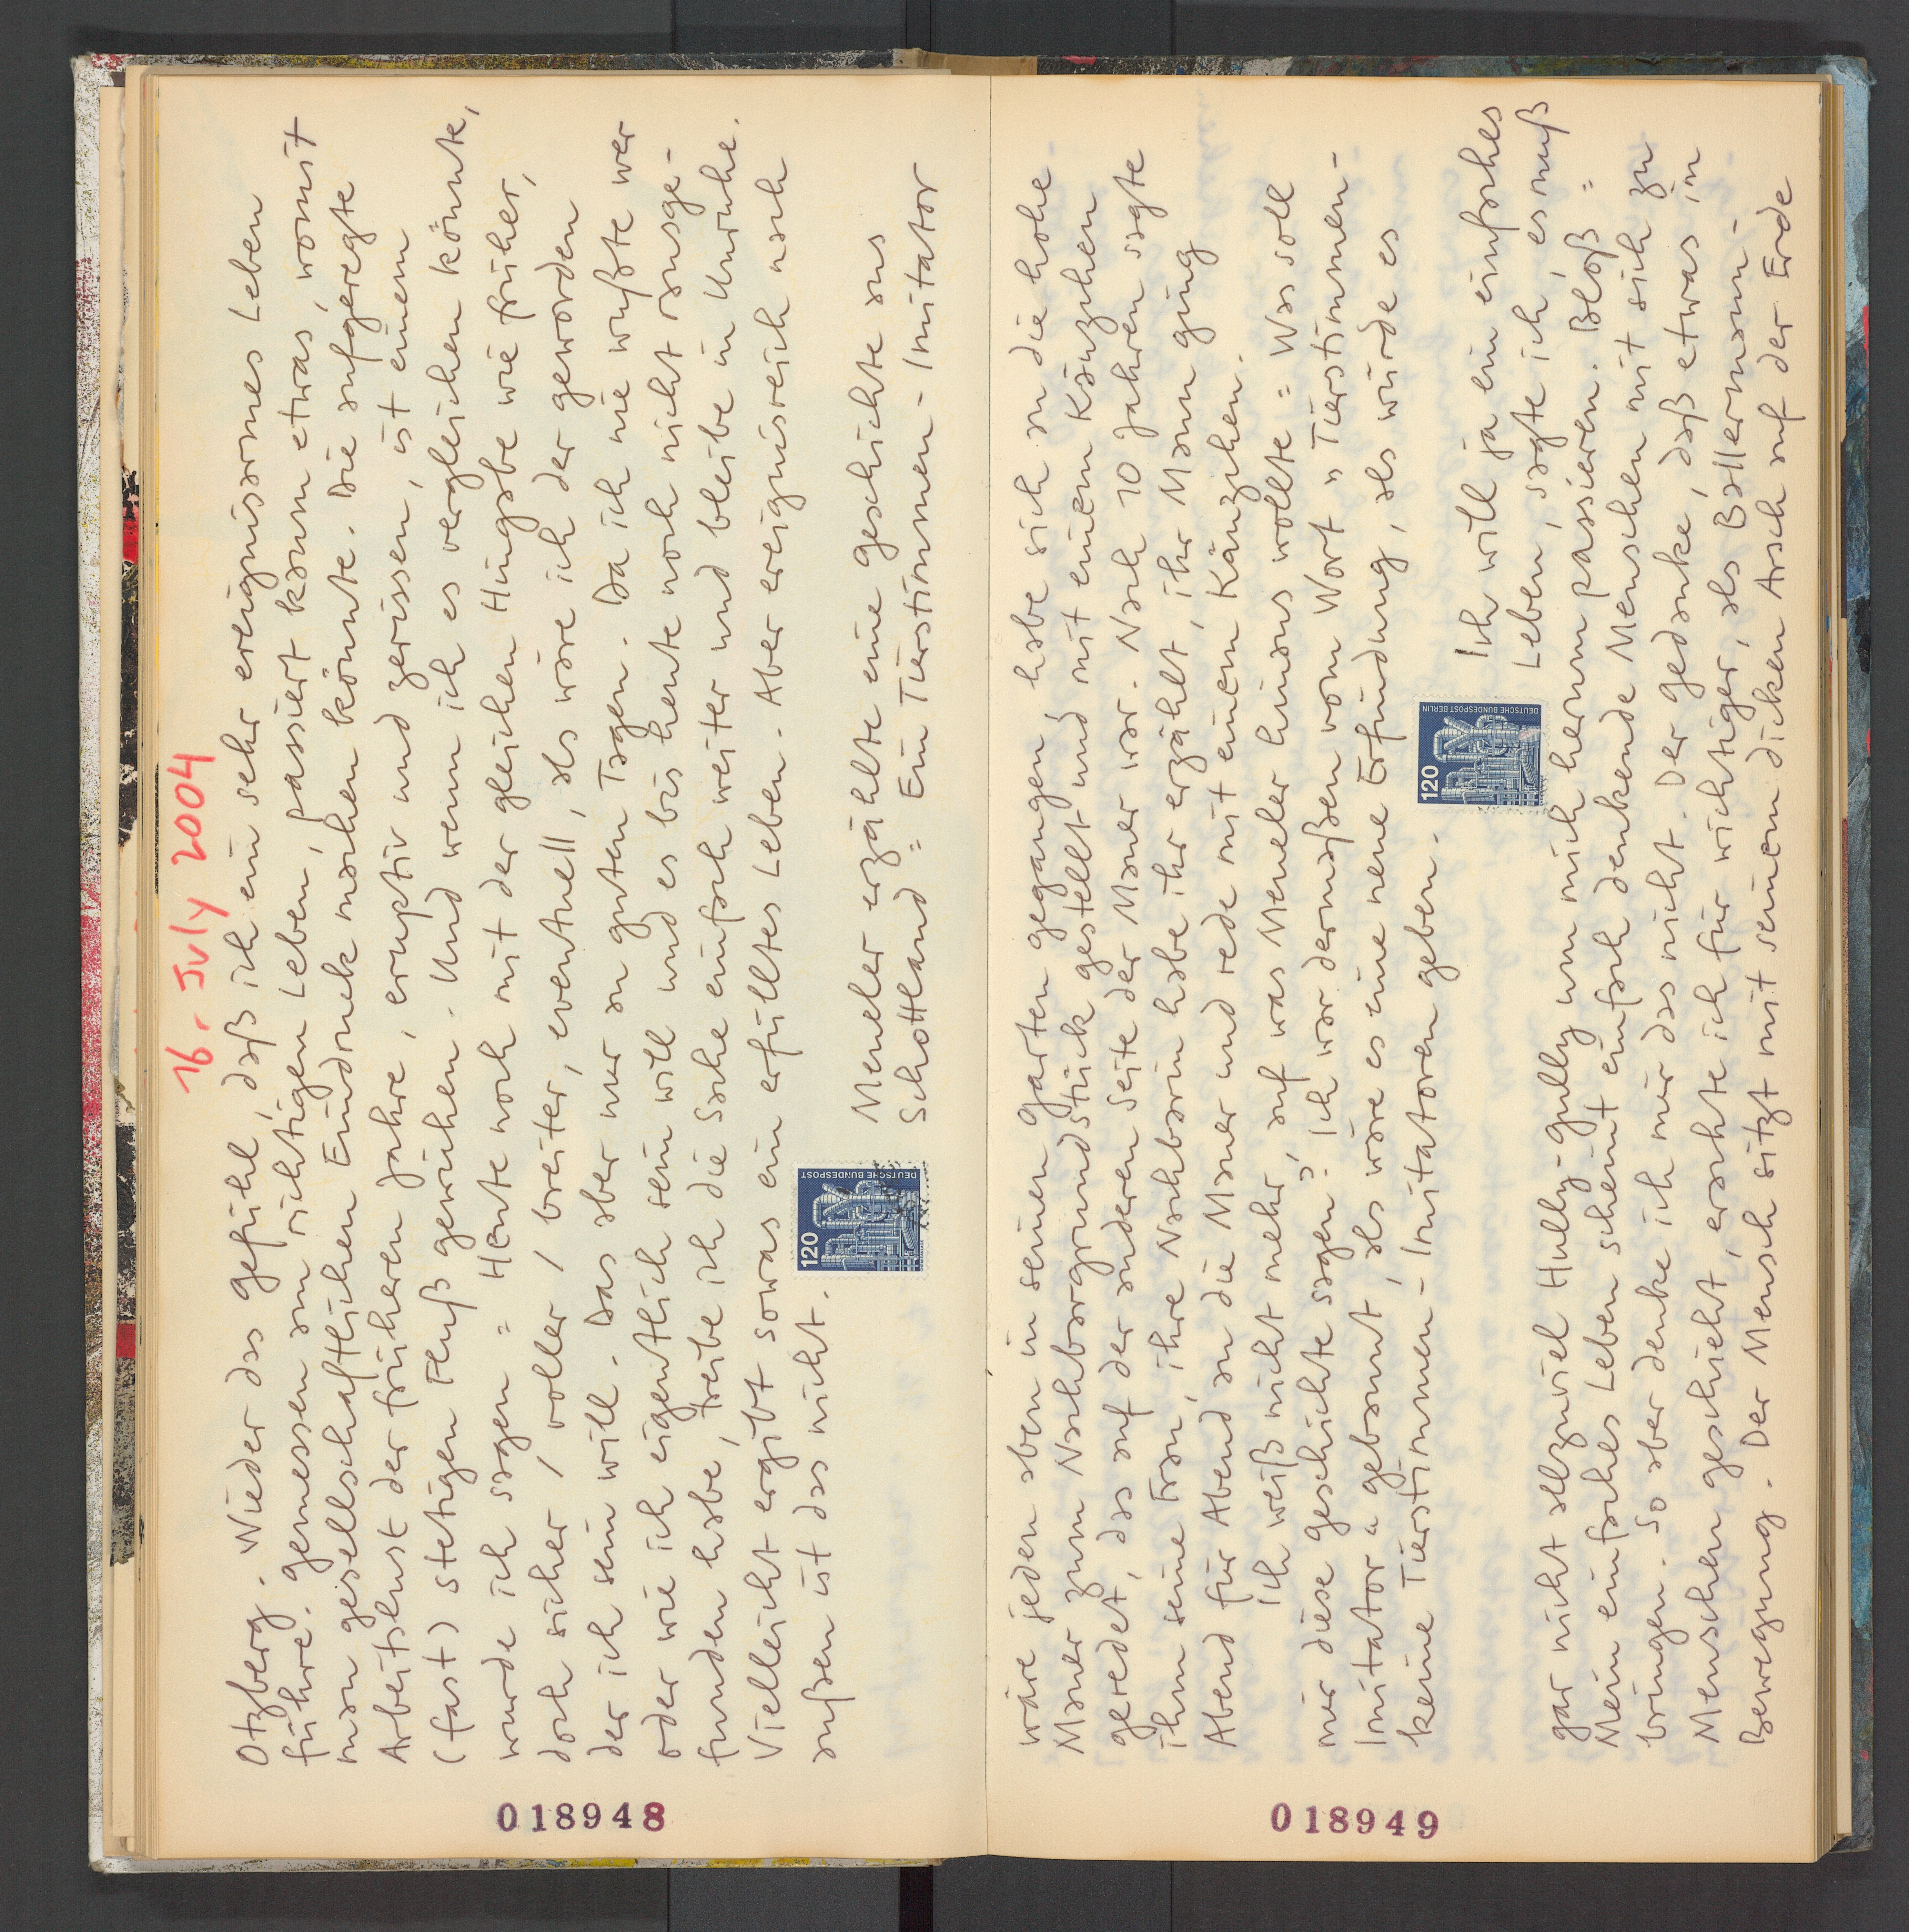 16. July 2004
Otzberg. Wieder das Gefühl, daß ich ein sehr ereignisarmes Leben
führe. Gemessen am richtigen Leben, passiert kaum etwas, womit
man gesellschaftlichen Eindruck machen könnte. Die aufgeregte
Arbeitslust der früheren Jahre, eruptiv und zerissen, ist einem
(fast) stetigen Fluß gewichen. Und wenn ich es vergleichen könnte,
wurde ich sagen = Heute noch mit der gleichen Hingabe wie früher,
doch sicher / voller / breiter, eventuell, als wäre ich der geworden
der ich sein will. Das aber nur an guten Tagen. Da ich nie wußte wer
oder wie ich eigentlich sein will und es bis heute noch nicht rausge-
funden habe, treibe ich die Sache einfach weiter und bleibe in Unruhe.
Vielleicht ergibt sowas ein erfülltes Leben. Aber ereignisreich nach
außen ist das nicht.
120
DEUTSCHE BUNDESPOST
Meneller erzählte eine Geschichte aus
Schottland = Ein Tierstimmen-Imitator
018948
wäre jeden aben in seinen Garten gegangen, habe sich an die hohe
Mauer zum Nachbargrundstück gestellt und mit einem Käuzchen
geredet, das auf der anderen Seite der Mauer war. Nach 10 Jahren sagte
ihm seine Frau, ihre Nachbarin habe ihr erzählt, ihr Mann ging
Abend für Abend an die Mauer und rede mit einem Käuzchen.
Ich weiß nicht mehr, auf was Meneller hinaus wollte = Was soll
mir diese Geschichte sagen?, Ich war dermaßen vom Wort "Tierstimmen-
Imitator" gebannt, als wäre es eine neue Erfindung, als würde es
keine Tierstimmen-Imitatoren geben.
120
DEUTSCHE BUNDESPOST BERLIN
Ich will ja ein einfaches
Leben, sagte ich, es muß
gar nicht allzuviel Hully-Gully um mich herum passieren. Bloß =
Mein einfaches Leben scheint einfach denkende Menschen mit sich zu
bringen. So aber denke ich mir das nicht. Der Gedanke, daß etwas in
Menschen geschieht, erachte ich für wichtiger, als Ballermann-
Bewegung. Der Mensch sitzt mit seinem dicken Arsch auf der Erde
018949